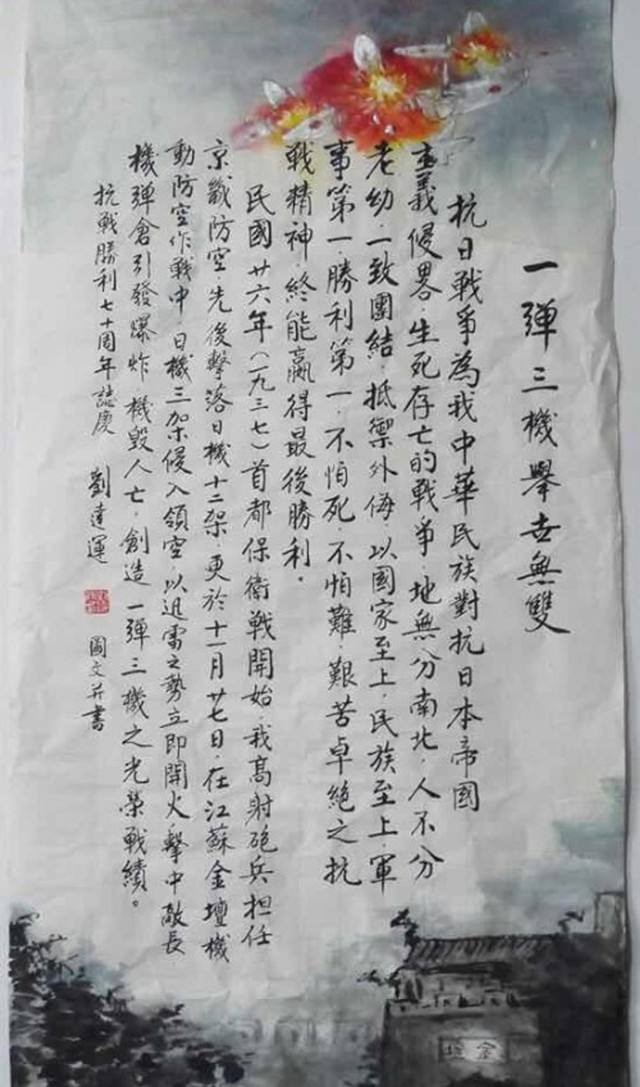 一弹三機舉世無雙
抗日戰爭為我中華民族對抗日本帝國
主義侵畧,生死存亡的戰爭,地無分南北,人不分
老幼,一致團結,抵禦外侮,以國家至上,民族至上,軍
事第一,勝利第一,不怕死,不怕難,艱苦卓絕之抗
戰精神,終能贏得最後勝利。
民國廿六年(一九三七)首都保衛戰開始,我高射砲兵担任
京畿防空,先後擊落日機十二架,更於十一月廿七日,在江蘇金壇機
動防空作戰中,日機三架侵入領空,以迅雷之勢立即開火,擊中敵長
機弹倉引發爆炸,機毀人亡,創造一弹三機之光榮戰績。
抗戰勝利七十周年誌慶 劉達運 圖文并書
金